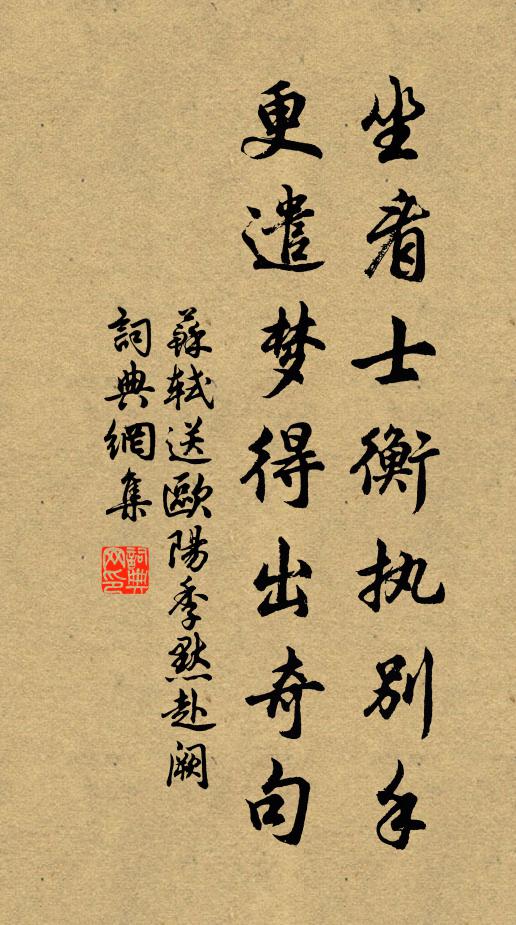 坐看士衡执别手
更遣梦得出奇句
蘇軾送歐陽季默赴闕
詞典網集
詞典网印